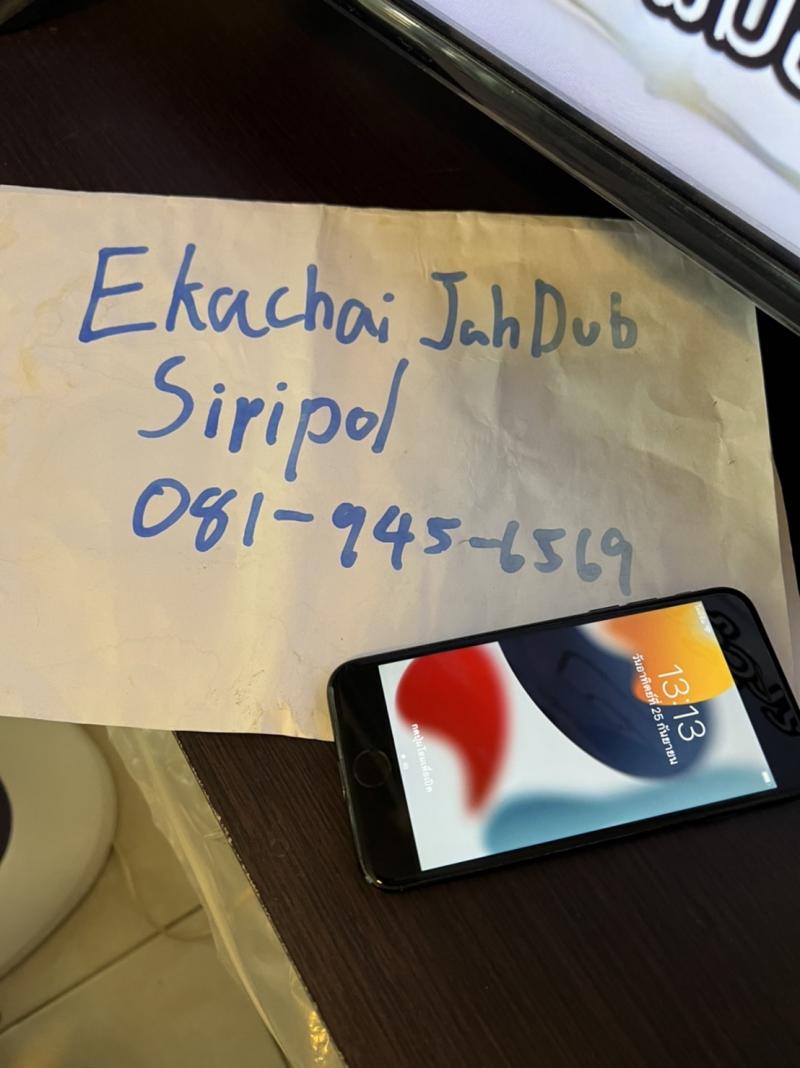 Ekachai JahDub
Siripol
081-945-6569
13:13
วันอาทิตย์ที่ 25 กันยายน
กดปุ่มโฮมเพื่อเปิด